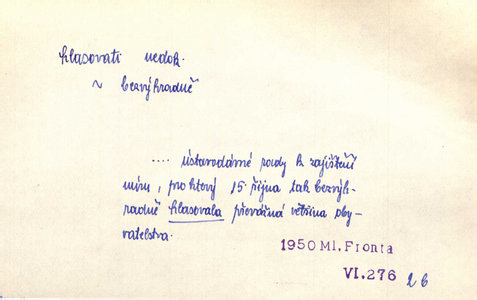 hlasovati nedok.
~ bezvýhradně
.... ústavodárné rady k zajištění
míru, pro ktový 15. října tak bezvýh-
radně hlasovala převážná většina oby-
vatelstva.
1950 Ml. Fronta
VI. 276 26